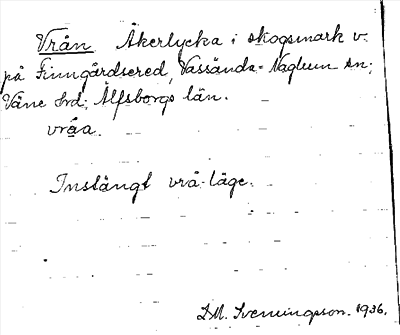 Vrån Åkerlycka i skogsmark v.
på Finngårdsered, Vassända-Naglum sn;
Väne hrd; Älfsborgs län.
vråa.
Instängt vrå-läge.
D.M. Svenningsson. 1936.